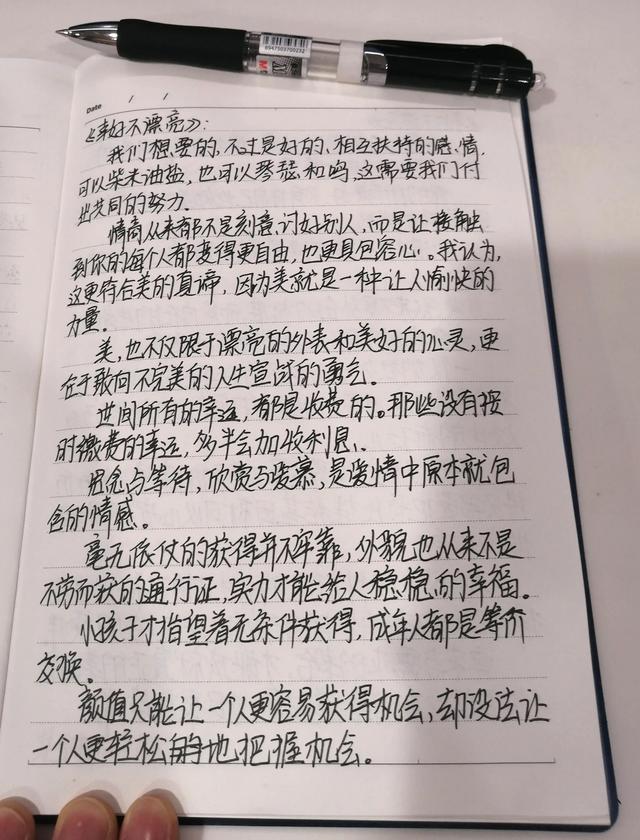 Date / /
《幸好不漂亮》：
我们想要的，不过是好的、相互扶持的感情，
可以柴米油盐，也可以琴瑟和鸣，这需要我们付
出共同的努力。
情商从来都不是刻意讨好别人，而是让接触
到你的每个人都变得更自由，也更具包容心。我认为，
这更符合美的真谛，因为美就是一种让人愉快的
力量。
美，也不仅限于漂亮的外表和美好的心灵，更
在于敢向不完美的人生宣战的勇气。
世间所有的幸运，都是收费的。那些没有按
时缴费的幸运，多半会加收利息。
思念与等待，欣赏与爱慕，是爱情中原本就包
含的情感。
毫无依仗的获得并不牢靠，外貌也从来不是
不劳而获的通行证，实力才能给人稳稳的幸福。
小孩子才指望着无条件获得，成年人都是等价
交换。
颜值只能让一个人更容易获得机会，却没法让
一个人更轻松地把握机会。
6947503700232